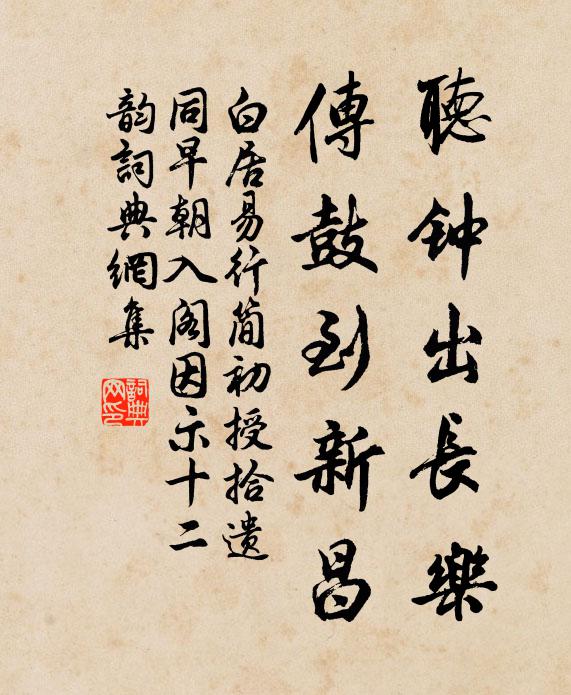 聽钟出長樂
傳鼓到新昌
白居易行简初授拾遗
同早朝入阁因示十二
韵詞典網集
詞典网印